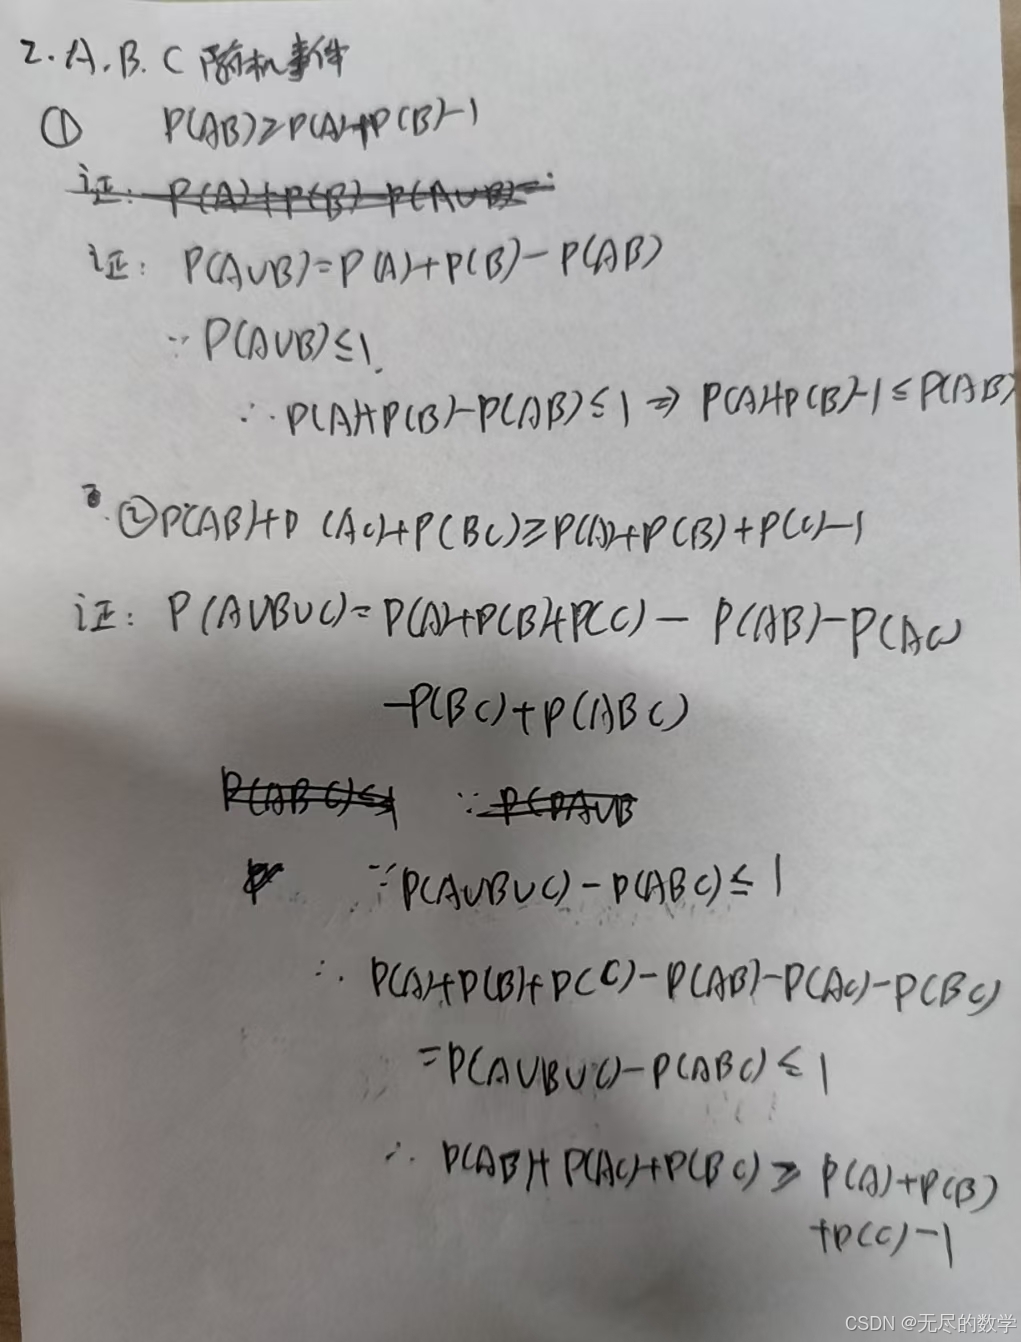 2. A. B. C 随机事件
① P(AB)≥P(A)+P(B)-1
证: P(A)+P(B)-P(A∪B)=
证: P(A∪B)=P(A)+P(B)-P(AB)
∵ P(A∪B)≤1.
∴ P(A)+P(B)-P(AB)≤1 ⇒ P(A)+P(B)-1≤P(AB)
②P(AB)+P(AC)+P(BC)≥P(A)+P(B)+P(C)-1
证: P(A∪B∪C)=P(A)+P(B)+P(C)-P(AB)-P(AC)
-P(BC)+P(ABC)
P(ABC)≤1 ∵ P(PA∪B
∵P(A∪B∪C)-P(ABC)≤1
∴ P(A)+P(B)+P(C)-P(AB)-P(AC)-P(BC)
=P(A∪B∪C)-P(ABC)≤1
∴ P(AB)+P(AC)+P(BC)≥P(A)+P(B)
+P(C)-1
CSDN @无尽的数学